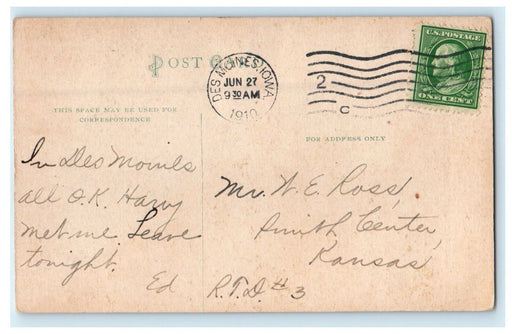 POST CARD
DES MOINES, IOWA
JUN 27
9 30 AM
1910
2
C
U.S. POSTAGE
ONE CENT
THIS SPACE MAY BE USED FOR
CORRESPONDENCE
FOR ADDRESS ONLY
In Des Moines
all O.K. Harry
met me Leave
tonight.
Ed
Mr. W. E. Ross,
Smith Center,
Kansas
R.F.D. # 3